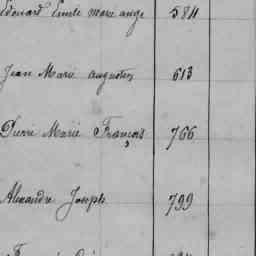 Edouard Emile marie ange 584
Jean Marie augustin 613
Pierre Marie François 766
Alexandre Joseph 799